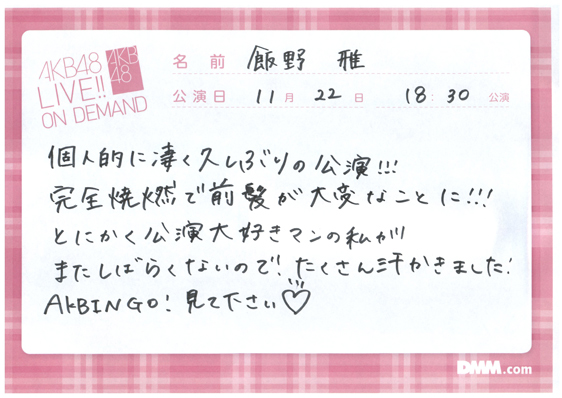 AKB48
LIVE!!
ON DEMAND
AKB
48
名前 飯野 雅
公演日 11月 22日 18:30 公演
個人的に凄く久しぶりの公演!!!
完全焼燃で前髪が大変なことに!!!
とにかく公演大好きマンの私が!!
またしばらくないので!たくさん汗かきました!
AKBINGO!見て下さい♡
DMM.com